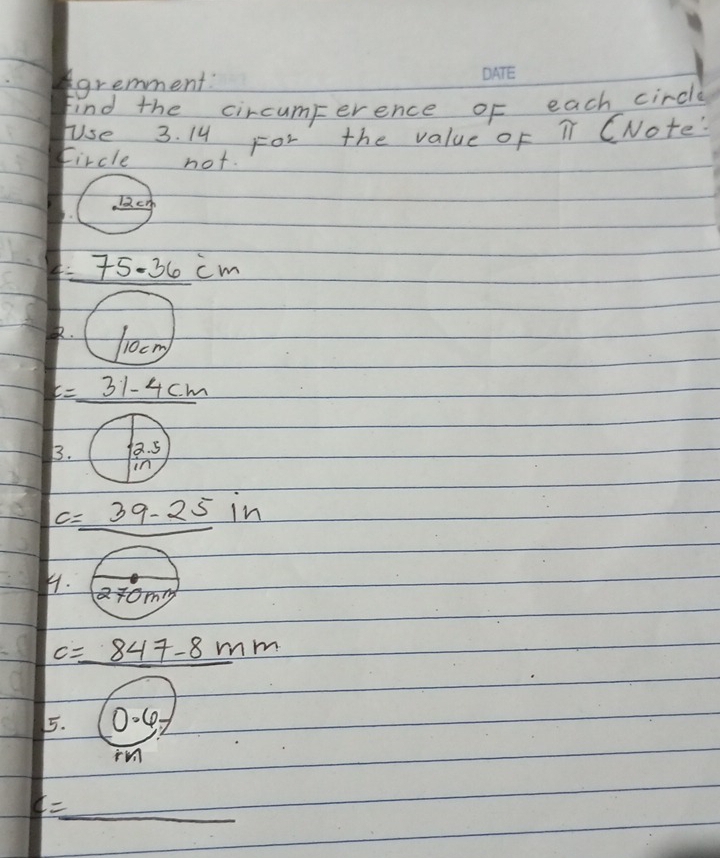 DATE
Agremment:
Find the circumference of each circle
Use 3.14 For the value of π (Note:
Circle not.
12cm
C= 75.36 cm
2.
10cm
C= 31-4cm
3.
2.5
in
C= 39-25 in
4.
270mm
C= 847-8 mm
5.
0.6
m
C=